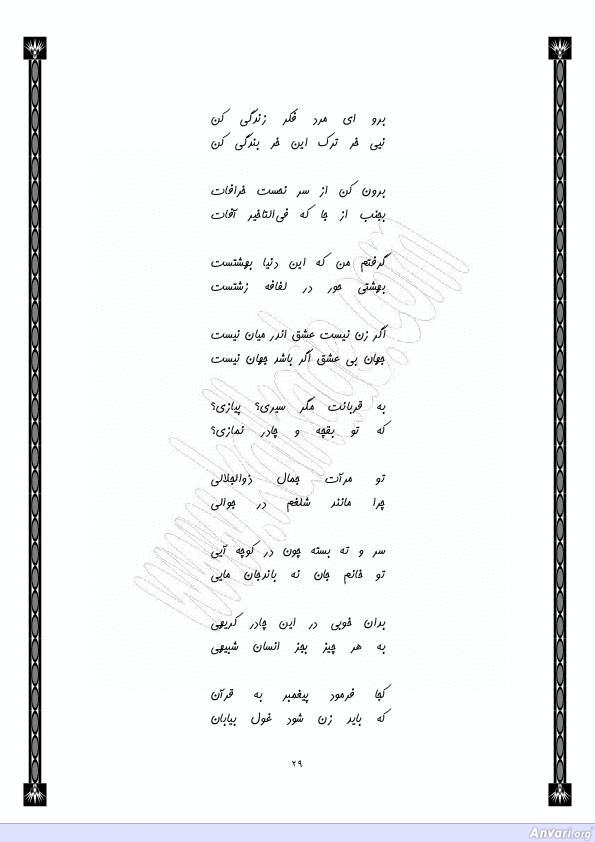 برو ای مرد فکر زندگی کن
نیی خر ترک این خر بندگی کن
برون کن از سر نحست خرافات
بجنب از جا که فی‌التاخیر آفات
گرفتم من که این دنیا بهشتست
بهشتی حور در لفافه زشتست
اگر زن نیست عشق اندر میان نیست
جهان بی عشق اگر باشد جهان نیست
به قربانت مگر سیری؟ پیازی؟
که تو بقچه و چادر نمازی؟
تو مرآت جمال ذوالجلالی
چرا مانند شلغم در جوالی
سر و ته بسته چون در کوچه آیی
تو خانم جان نه بادنجان مایی
بدان خوبی در این چادر کریهی
به هر چیز بجز انسان شبیهی
کجا فرمود پیغمبر به قرآن
که باید زن شود غول بیابان
۲۹
Anvari.org